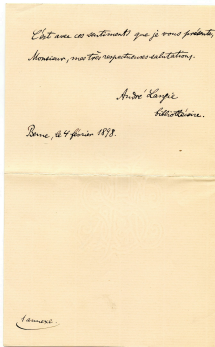 C'est avec ces sentiments que je vous présente,
Monsieur, mes très respectueuses salutations.
André Langie
bibliothécaire.
Berne, le 4 février 1898.
1 annexe.